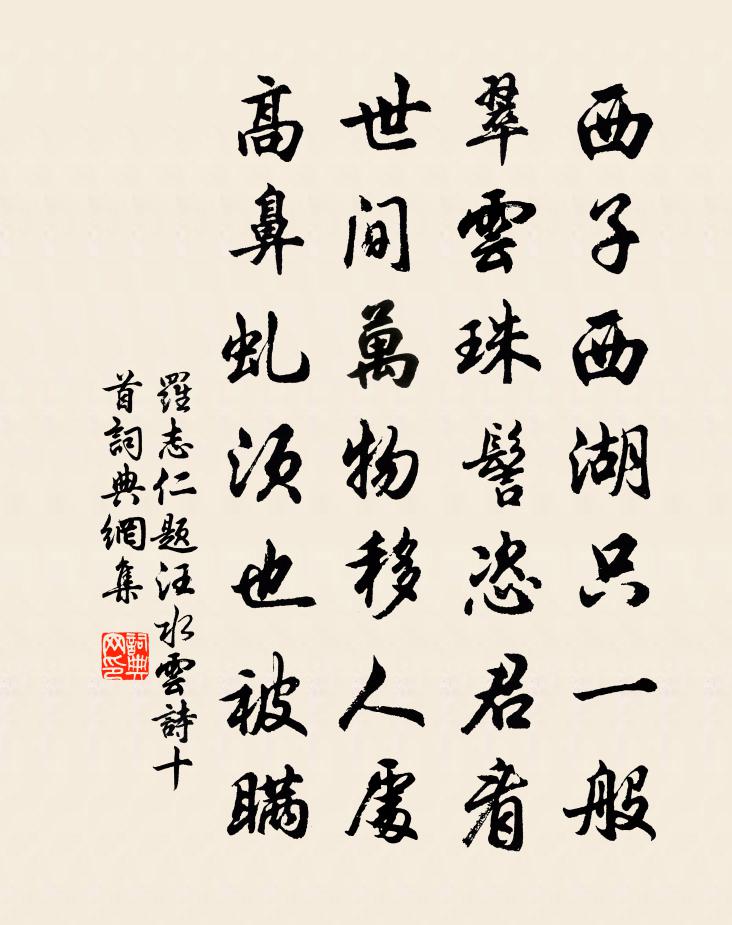 西子西湖只一般
翠雲珠髻恣君看
世間萬物移人處
高鼻虬須也被瞞
羅志仁題汪水雲詩十
首詞典網集
詞典
网印